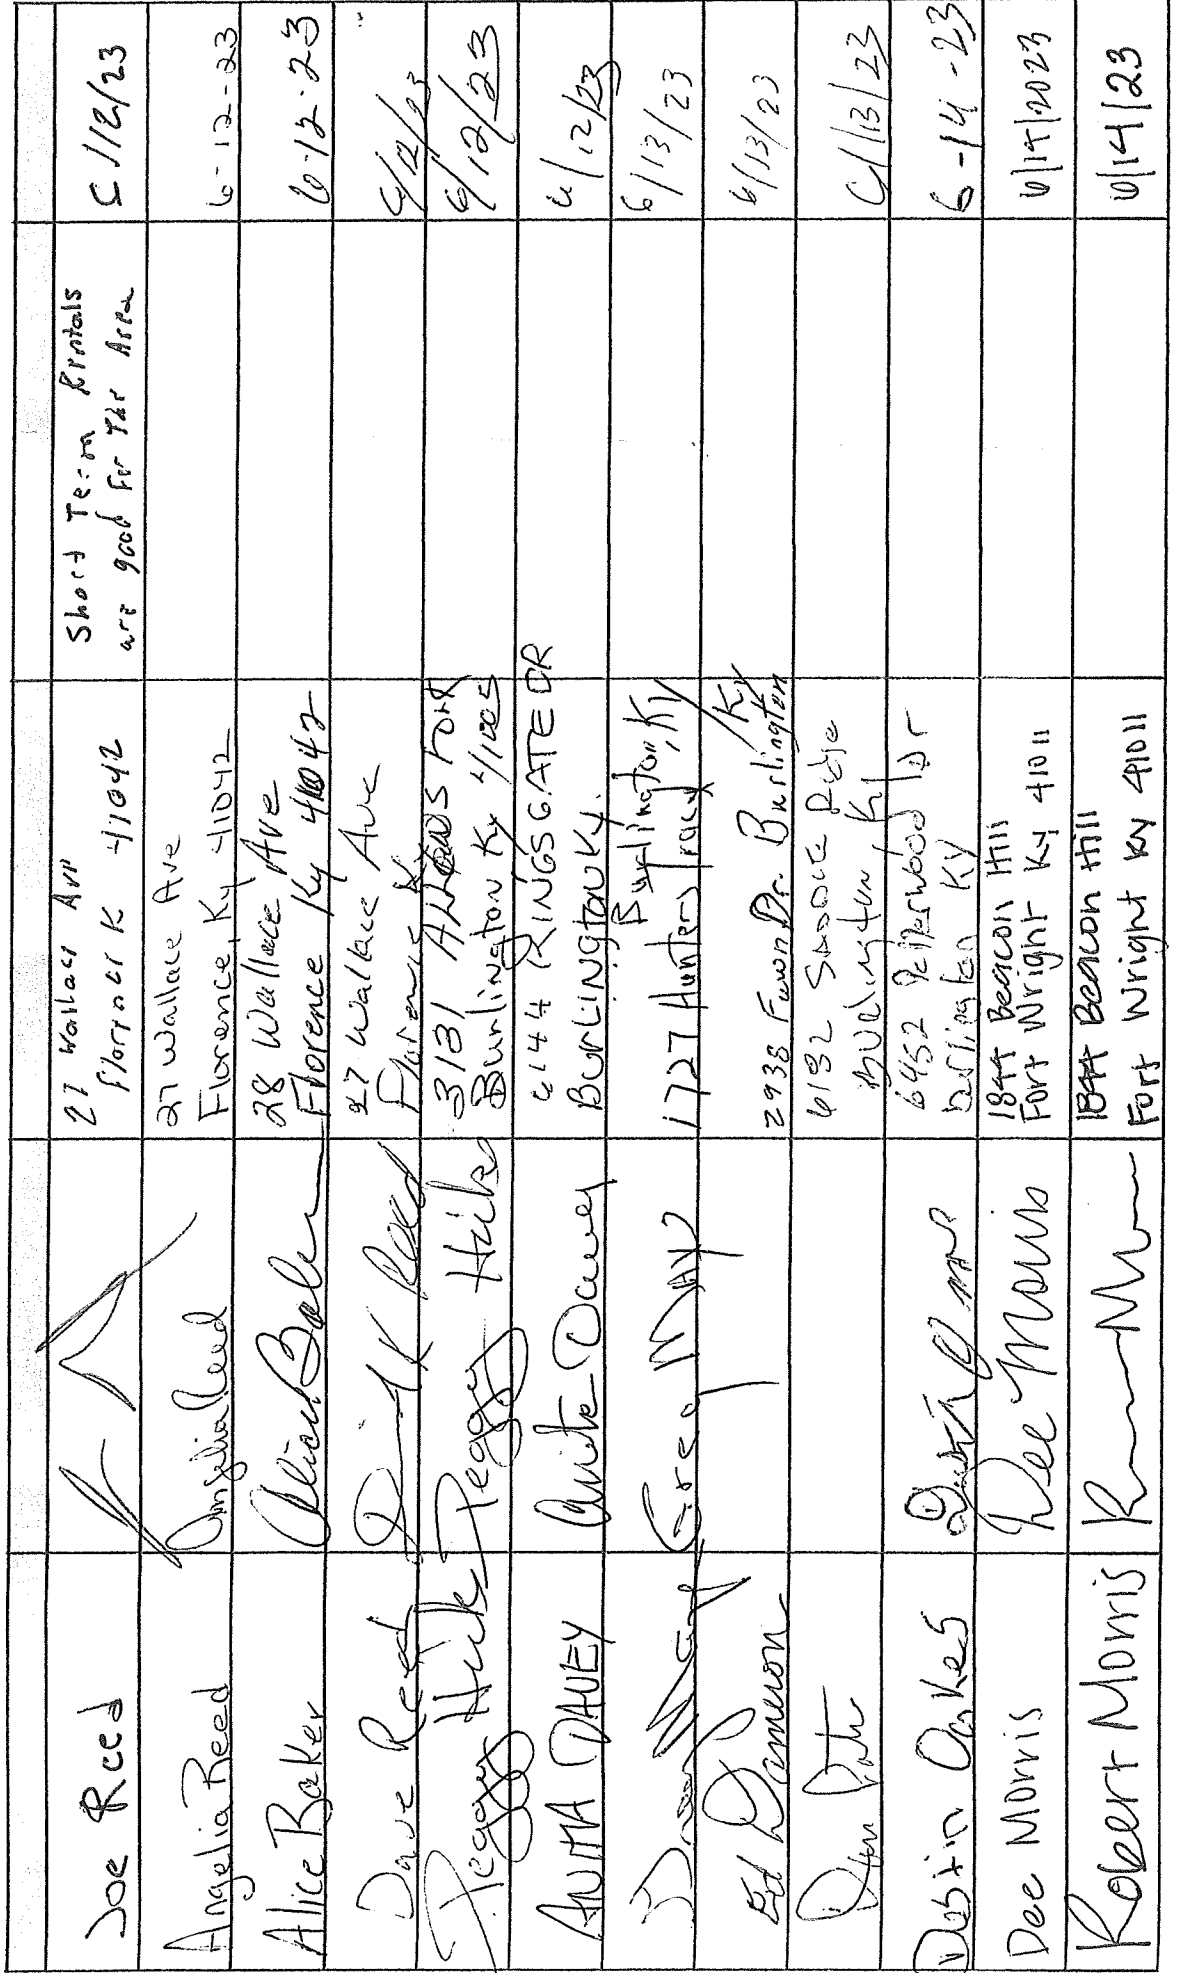 Joe Reed
27 Wallacr Avr
Florrncr K 41042
Short Term Rrntals
are good for The Area
Angelia Reed
Angelia Reed
27 Wallace Ave
Florence, Ky 41042
6-12-23
Alice Baker
Alice Baker
28 Wallace Ave
Florence Ky 41042
6-12-23
Dave Reed
27 Wallace Ave
6/12/23
Peggy Hicks
Peggy Hicks
3131
Burlington Ky 41005
6/12/23
ANITA DAVEY
Anita Davey
6144 KINGSGATE DR
BURLINGTON Ky.
6/12/23
Greg May
Burlington, Ky
1727 Hunters Trace
6/13/23
Ed Dameron
2938 Fawn Dr. Burlington Ky
6/13/23
6132 Saddle Ridge
Burlington Ky
6/13/23
Dustin Oakes
6452
Burlington Ky
6-14-23
Dee Morris
Dee Morris
1844 Beacon Hill
Fort Wright Ky 41011
6/14/2023
Robert Morris
1844 Beacon Hill
Fort Wright Ky 41011
6/14/23